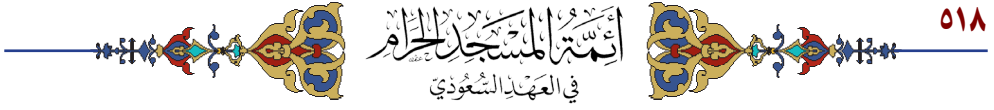 ٥١٨
أَئِمَّةُ المَسْجِدِ الحَرَامِ
فِي العَهْدِ السُّعُودِيّ